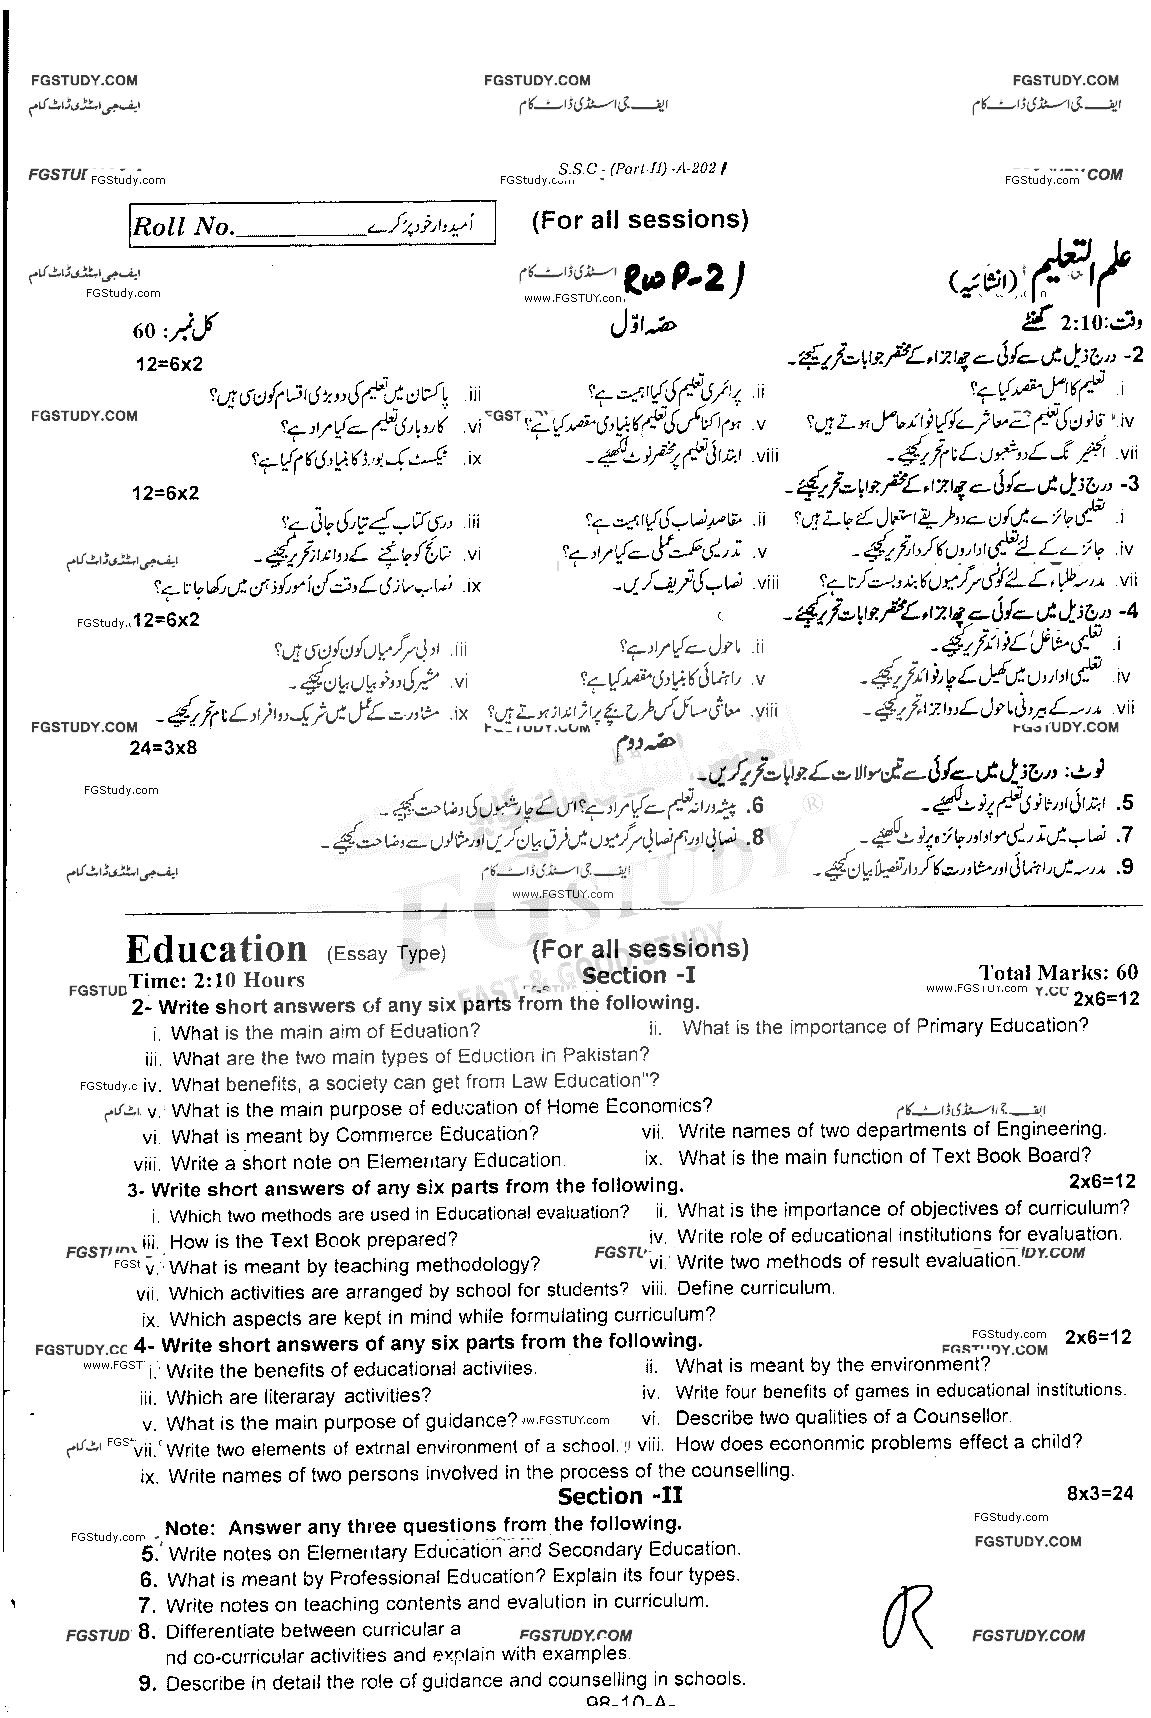 FGSTUDY.COM FGSTUDY.COM FGSTUDY.COM
ایف جی اسٹڈی ڈاٹ کام ایف جی اسٹڈی ڈاٹ کام ایف جی اسٹڈی ڈاٹ کام
S.S.C - (Part-II) -A-2021
FGSTU FGStudy.com FGStudy.com FGStudy.com COM
Roll No. اُمیدوار خود پُر کرے (For all sessions)
علم التعلیم (انشائیہ)
ایف جی اسٹڈی ڈاٹ کام اسٹڈی ڈاٹ کام RWP-21
FGStudy.com www.FGSTUY.com
وقت: 2:10 گھنٹے حصہ اوّل کل نمبر: 60
2- درج ذیل میں سے کوئی سے چھ اجزاء کے مختصر جوابات تحریر کیجئے۔ 12=6x2
i. تعلیم کا اصل مقصد کیا ہے؟ ii. پرائمری تعلیم کی کیا اہمیت ہے؟ iii. پاکستان میں تعلیم کی دو بڑی اقسام کون سی ہیں؟
FGSTUDY.COM
iv. قانون کی تعلیم سے معاشرے کو کیا فوائد حاصل ہوتے ہیں؟ v. ہوم اکنامکس کی تعلیم کا بنیادی مقصد کیا ہے؟ vi. کاروباری تعلیم سے کیا مراد ہے؟
vii. انجینئرنگ کے دو شعبوں کے نام تحریر کیجئے۔ viii. ابتدائی تعلیم پر مختصر نوٹ لکھئے۔ ix. ٹیکسٹ بک بورڈ کا بنیادی کام کیا ہے؟
3- درج ذیل میں سے کوئی سے چھ اجزاء کے مختصر جوابات تحریر کیجئے۔ 12=6x2
i. تعلیمی جائزے میں کون سے دو طریقے استعمال کئے جاتے ہیں؟ ii. مقاصدِ نصاب کی کیا اہمیت ہے؟ iii. درسی کتاب کیسے تیار کی جاتی ہے؟
iv. جائزے کے لئے تعلیمی اداروں کا کردار تحریر کیجئے۔ v. تدریسی حکمت عملی سے کیا مراد ہے؟ vi. نتائج کو جانچنے کے دو انداز تحریر کیجئے۔
ایف جی اسٹڈی ڈاٹ کام
vii. مدرسہ طلباء کے لئے کونسی سرگرمیوں کا بندوبست کرتا ہے؟ viii. نصاب کی تعریف کریں۔ ix. نصاب سازی کے وقت کن اُمور کو ذہن میں رکھا جاتا ہے؟
4- درج ذیل میں سے کوئی سے چھ اجزاء کے مختصر جوابات تحریر کیجئے۔ 12=6x2
i. تعلیمی مشاغل کے فوائد تحریر کیجئے۔ ii. ماحول سے کیا مراد ہے؟ iii. ادبی سرگرمیاں کون کون سی ہیں؟
iv. تعلیمی اداروں میں کھیل کے چار فوائد تحریر کیجئے۔ v. راہنمائی کا بنیادی مقصد کیا ہے؟ vi. مشیر کی دو خوبیاں بیان کیجئے۔
vii. مدرسہ کے بیرونی ماحول کے دو اجزاء تحریر کیجئے۔ viii. معاشی مسائل کس طرح بچے پر اثر انداز ہوتے ہیں؟ ix. مشاورت کے عمل میں شریک دو افراد کے نام تحریر کیجئے۔
FGSTUDY.COM FGSTUDY.COM FGSTUDY.COM
حصہ دوم 24=3x8
نوٹ: درج ذیل میں سے کوئی سے تین سوالات کے جوابات تحریر کریں۔
FGStudy.com
5. ابتدائی اور ثانوی تعلیم پر نوٹ لکھئے۔ 6. پیشہ ورانہ تعلیم سے کیا مراد ہے؟ اس کے چار شعبوں کی وضاحت کیجئے۔
7. نصاب میں تدریسی مواد اور جائزہ پر نوٹ لکھئے۔ 8. نصابی اور ہم نصابی سرگرمیوں میں فرق بیان کریں اور مثالوں سے وضاحت کیجئے۔
9. مدرسہ میں راہنمائی اور مشاورت کا کردار تفصیلاً بیان کیجئے۔
ایف جی اسٹڈی ڈاٹ کام ایف جی اسٹڈی ڈاٹ کام
www.FGSTUY.com
FGSTUDY
FAST & GOOD STUDY
Education (Essay Type) (For all sessions)
Time: 2:10 Hours Section -I Total Marks: 60
FGSTUD www.FGSTUY.com Y.CC
2- Write short answers of any six parts from the following. 2x6=12
i. What is the main aim of Eduation? ii. What is the importance of Primary Education?
iii. What are the two main types of Eduction in Pakistan?
FGStudy.c iv. What benefits, a society can get from Law Education"?
v. What is the main purpose of education of Home Economics? ایف جی اسٹڈی ڈاٹ کام
vi. What is meant by Commerce Education? vii. Write names of two departments of Engineering.
viii. Write a short note on Elementary Education. ix. What is the main function of Text Book Board?
3- Write short answers of any six parts from the following. 2x6=12
i. Which two methods are used in Educational evaluation? ii. What is the importance of objectives of curriculum?
iii. How is the Text Book prepared? iv. Write role of educational institutions for evaluation.
v. What is meant by teaching methodology? vi. Write two methods of result evaluation.
vii. Which activities are arranged by school for students? viii. Define curriculum.
ix. Which aspects are kept in mind while formulating curriculum?
FGSTUDY.CC 4- Write short answers of any six parts from the following. FGStudy.com 2x6=12
www.FGST i. Write the benefits of educational activities. ii. What is meant by the environment?
iii. Which are literaray activities? iv. Write four benefits of games in educational institutions.
v. What is the main purpose of guidance? vi. Describe two qualities of a Counsellor.
vii. Write two elements of extrnal environment of a school. viii. How does econonmic problems effect a child?
ix. Write names of two persons involved in the process of the counselling.
Section -II 8x3=24
FGStudy.com
Note: Answer any three questions from the following.
FGStudy.com FGSTUDY.COM
5. Write notes on Elementary Education and Secondary Education.
6. What is meant by Professional Education? Explain its four types.
7. Write notes on teaching contents and evalution in curriculum.
8. Differentiate between curricular a
FGSTUD FGSTUDY.COM FGSTUDY.COM
nd co-curricular activities and explain with examples.
9. Describe in detail the role of guidance and counselling in schools.
98-10-A-